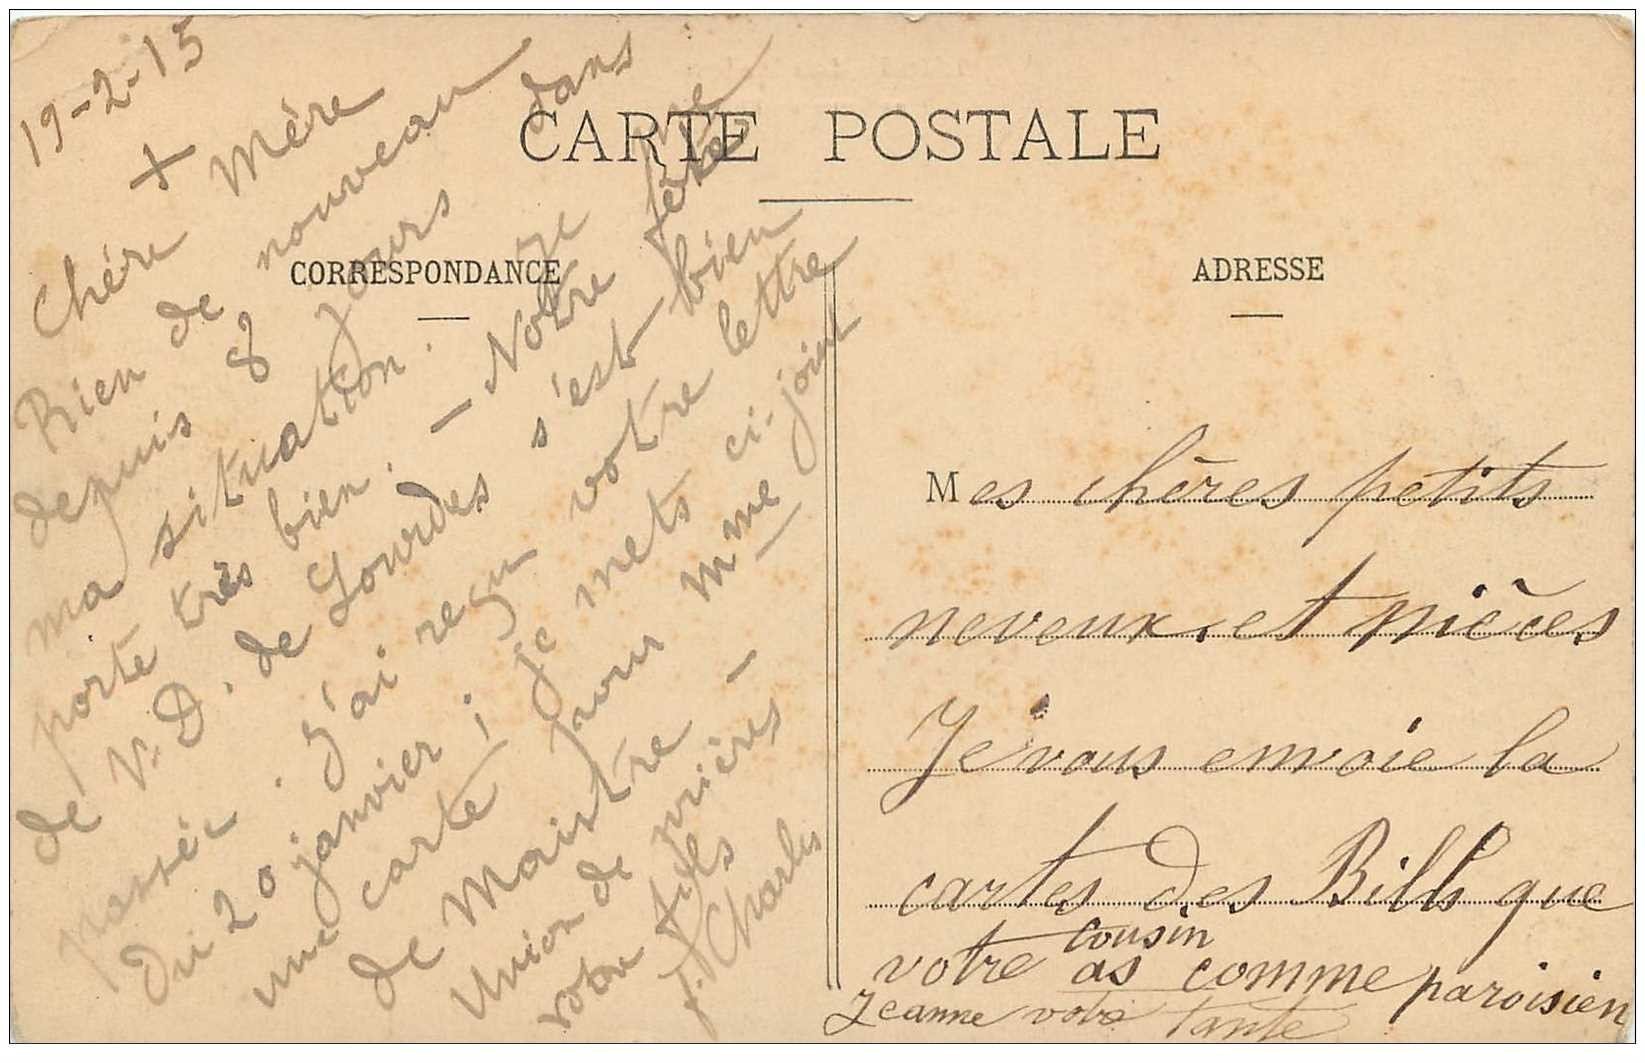 CARTE POSTALE
CORRESPONDANCE
ADRESSE
19-2-15
+
Chère Mère
Rien de nouveau
depuis 8 jours dans
ma situation. Je me
porte très bien. - Notre fête
de N. D. de Lourdes s'est bien
passée. J'ai reçu votre lettre
du 20 janvier ; je mets ci-joint
une carte pour Mme
de Maistre -
Union de prières
votre fils
f. Charles
Mes chères petits
neveux et nièces
Je vous envoie la
cartes des Bills que
votre cousin as comme paroisien
Jeanne votre tante